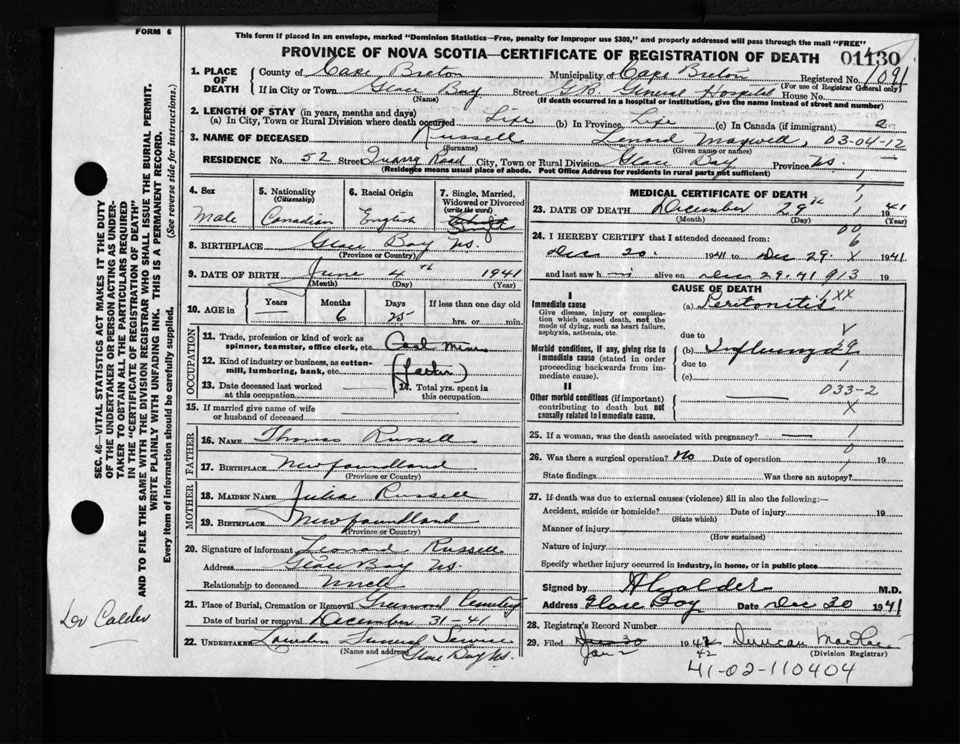 FORM 6
This form if placed in an envelope, marked "Dominion Statistics—Free, penalty for improper use $300," and properly addressed will pass through the mail "FREE"
PROVINCE OF NOVA SCOTIA—CERTIFICATE OF REGISTRATION OF DEATH 01130
1. PLACE OF DEATH County of Cape Breton Municipality of Cape Breton Registered No. 1091
(For use of Registrar General only)
If in City or Town Glace Bay Street G.B. General Hospital House No.
(Name) (If death occurred in a hospital or institution, give the name instead of street and number)
2. LENGTH OF STAY (in years, months and days)
(a) In City, Town or Rural Division where death occurred Life (b) In Province Life (c) In Canada (if immigrant)
3. NAME OF DECEASED Russell Leonard Maxwell, 03-04-12
(Surname) (Given name or names)
RESIDENCE No. 52 Street Quarry Road City, Town or Rural Division Glace Bay Province NS.
(Residence means usual place of abode. Post Office Address for residents in rural parts not sufficient)
SEC. 46—VITAL STATISTICS ACT MAKES IT THE DUTY OF THE UNDERTAKER OR PERSON ACTING AS UNDERTAKER TO OBTAIN ALL THE PARTICULARS REQUIRED IN THE "CERTIFICATE OF REGISTRATION OF DEATH" AND TO FILE THE SAME WITH THE DIVISION REGISTRAR WHO SHALL ISSUE THE BURIAL PERMIT.
WRITE PLAINLY WITH UNFADING INK. THIS IS A PERMANENT RECORD.
Every item of information should be carefully supplied. (See reverse side for instructions.)
4. Sex 5. Nationality 6. Racial Origin 7. Single, Married, Widowed or Divorced
(Citizenship) (write the word)
Male Canadian English Single
8. BIRTHPLACE Glace Bay NS.
(Province or Country)
9. DATE OF BIRTH June 4th 1941
(Month) (Day) (Year)
10. AGE in Years Months Days If less than one day old
— 6 25 hrs. or min.
OCCUPATION
11. Trade, profession or kind of work as spinner, teamster, office clerk, etc. Coal Miner
12. Kind of industry or business, as cotton-mill, lumbering, bank, etc. (father)
13. Date deceased last worked at this occupation 14. Total yrs. spent in this occupation
15. If married give name of wife or husband of deceased
FATHER
16. NAME Thomas Russell
17. BIRTHPLACE Newfoundland
(Province or Country)
MOTHER
18. MAIDEN NAME Julia Russell
19. BIRTHPLACE Newfoundland
(Province or Country)
20. Signature of informant Leonard Russell
Address Glace Bay NS
Relationship to deceased Uncle
21. Place of Burial, Cremation or Removal Greenwood Cemetery
Date of burial or removal December 31-41
22. UNDERTAKER Funeral Service
(Name and address) Glace Bay NS.
Dr Calder
MEDICAL CERTIFICATE OF DEATH
23. DATE OF DEATH December 29th 1941
(Month) (Day) (Year)
24. I HEREBY CERTIFY that I attended deceased from:
Dec 20. 1941 to Dec 29. 1941
and last saw h—m alive on Dec 29.41 913 19
CAUSE OF DEATH
I
Immediate cause (a) Peritonitis
Give disease, injury or complication which caused death, not the mode of dying, such as heart failure, asphyxia, asthenia, etc.
due to
Morbid conditions, if any, giving rise to immediate cause (stated in order proceeding backwards from immediate cause). (b) Influenza
due to
(c)
II
Other morbid conditions (if important) contributing to death but not causally related to immediate cause. 033-2
25. If a woman, was the death associated with pregnancy? —
26. Was there a surgical operation? No Date of operation 19
State findings Was there an autopsy?
27. If death was due to external causes (violence) fill in also the following:—
Accident, suicide or homicide? Date of injury 19
(State which)
Manner of injury
(How sustained)
Nature of injury
Specify whether injury occurred in industry, in home, or in public place
Signed by A Calder M.D.
Address Glace Bay Date Dec 30 1941
28. Registrar's Record Number
29. Filed Dec 30 194 Duncan MacRae
Jan 2 42 (Division Registrar)
41-02-110404